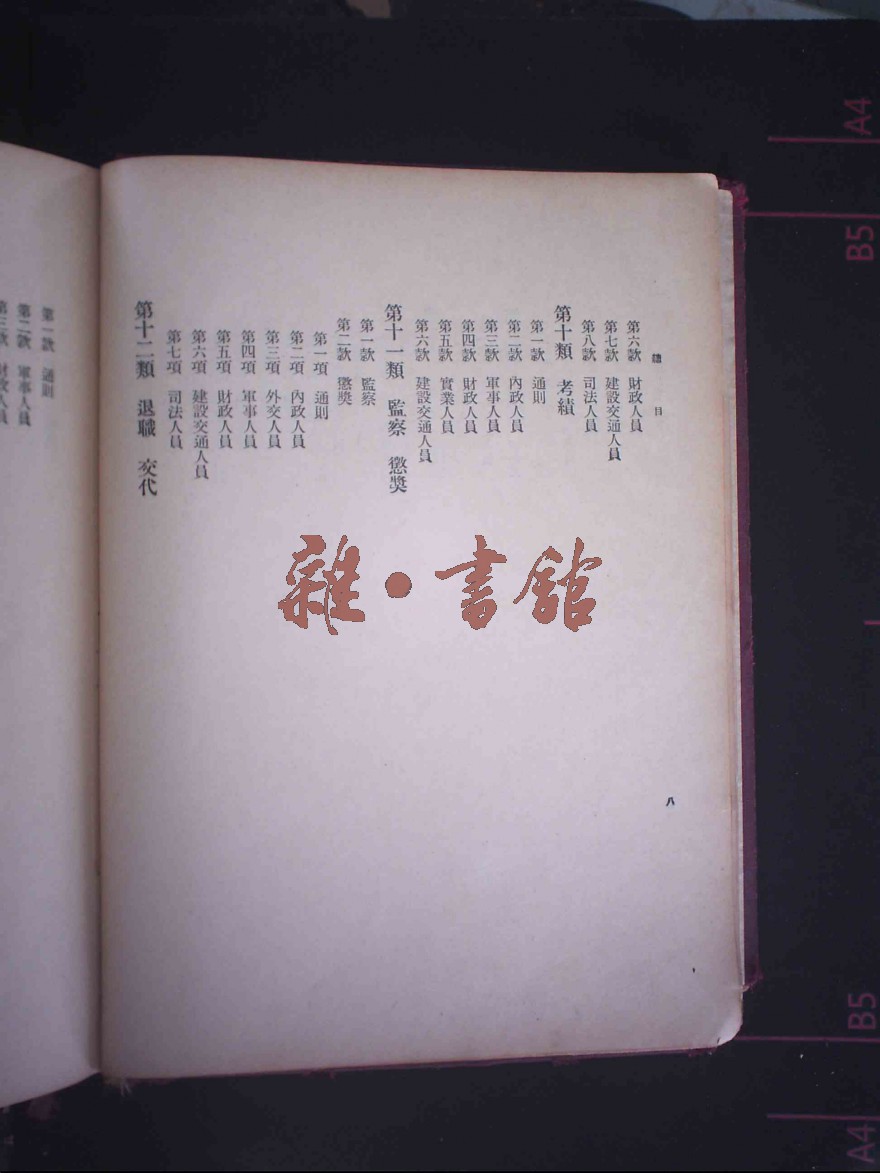 總目
第六款 財政人員
第七款 建設交通人員
第八款 司法人員
第十類 考績
第一款 通則
第二款 內政人員
第三款 軍事人員
第四款 財政人員
第五款 實業人員
第六款 建設交通人員
第十一類 監察 懲獎
第一款 監察
第二款 懲獎
第一項 通則
第二項 內政人員
第三項 外交人員
第四項 軍事人員
第五項 財政人員
第六項 建設交通人員
第七項 司法人員
第十二類 退職 交代
八
第一款 通則
第二款 軍事人員
第三款 財政人員
雜•書館
A4
B5
B5
A4